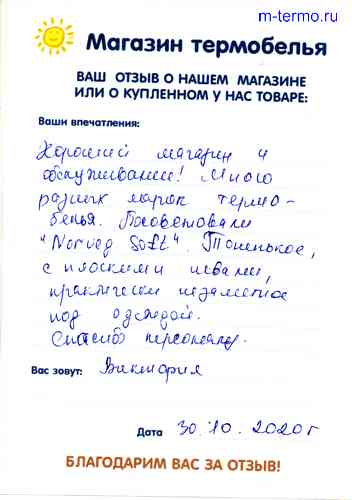 m-termo.ru
Магазин термобелья
ВАШ ОТЗЫВ О НАШЕМ МАГАЗИНЕ
ИЛИ О КУПЛЕННОМ У НАС ТОВАРЕ:
Ваши впечатления:
Хороший магазин и
обслуживание! Много
разных марок термо-
белья. Посоветовали
"Norveg Soft". Тоненькое,
с плоскими швами,
практически незаметное
под одеждой.
Спасибо персоналу.
Вас зовут: Виктория
Дата 30.10.2020г
БЛАГОДАРИМ ВАС ЗА ОТЗЫВ!